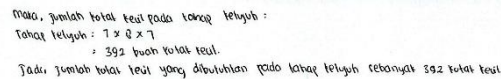 Maka, jumlah total kecil pada tahap ketujuh :
Tahap ketujuh : 7 x 8 x 7
: 392 buah kotak kecil.
Jadi, jumlah kotak kecil yang dibutuhkan pada tahap ketujuh sebanyak 392 kotak kecil